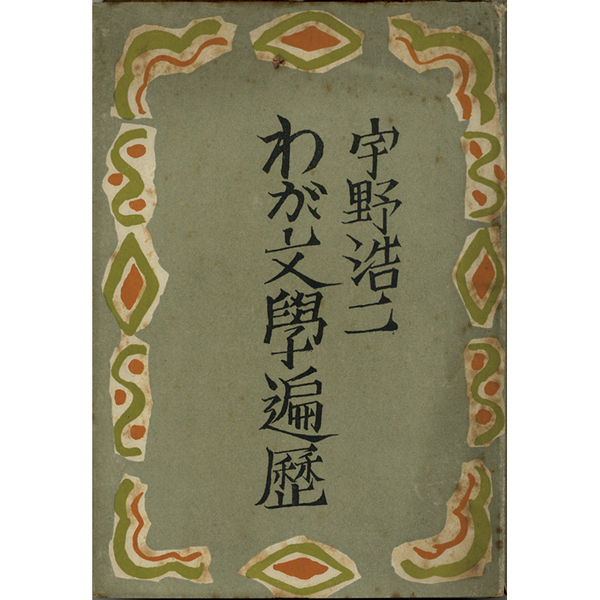 宇野浩二
わが文學遍歷